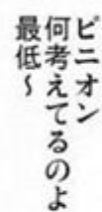 ピニオン
何考えてるのよ
最低〜